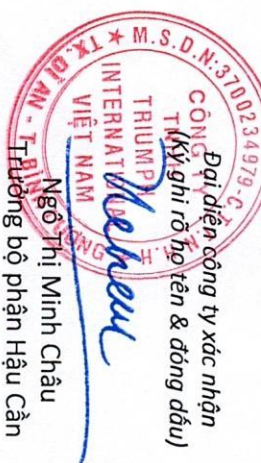 Đại diện công ty xác nhận
(Ký, ghi rõ họ tên & đóng dấu)
M.S.D.N:3700234979-C.T.T.N.H.H
CÔNG TY
TNHH
TRIUMPH
INTERNATIONAL
VIỆT NAM
TX. DĨ AN - T. BÌNH DƯƠNG
Ngô Thị Minh Châu
Trưởng bộ phận Hậu Cần